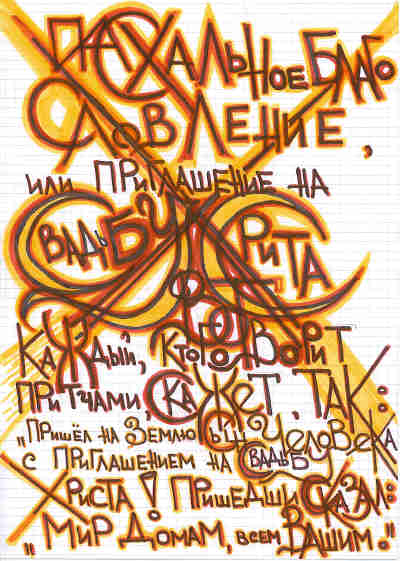 ПАСХАЛЬНОЕ БЛАГО
СЛОВЛЕНИЕ,
или ПРИГЛАШЕНИЕ НА
СВАДЬБУ ХРИСТА
КАЖДЫЙ, КТО ГОВОРИТ
ПРИТЧАМИ, СКАЖЕТ, ТАК:
„ПРИШЁЛ НА ЗЕМЛЮ СЫН ЧЕЛОВЕКА
С ПРИГЛАШЕНИЕМ НА СВАДЬБУ
ХРИСТА! ПРИШЕДШИ СКАЗАЛ:
„МИР ДОМАМ, ВСЕМ ВАШИМ."